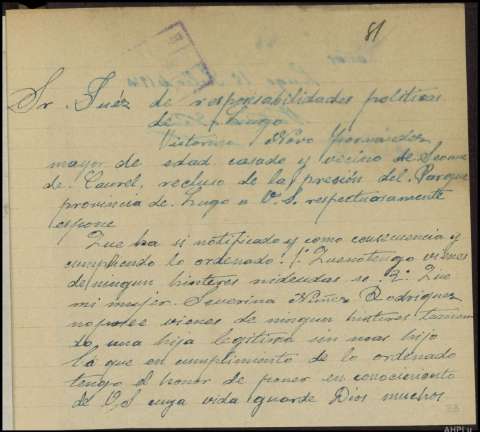 81
Sr. Juéz de responsabilidades politicas
de Lugo
Vitorino Novo Hernández
mayor de edad casado y vecino de Seoane
de Caurel, recluso de la presión del Parque
provincia de Lugo a V. S. respectuaramente
espone
Que ha si notificado y como consecuencia y
cumpliendo lo ordenado: 1º Quenotengo vienes
de ningun hinteres nideudas se: 2º Que
mi mujer. Severina Núñez Rodriguez
noposee vienes de ningun hinteres tenien
do una hija legitima sin mas hijo
Lo que en cumplimiento de lo ordenado
tengo el honor de poner en conocimento
de V,S cuya vida guarde Dios muchos
AHPLu